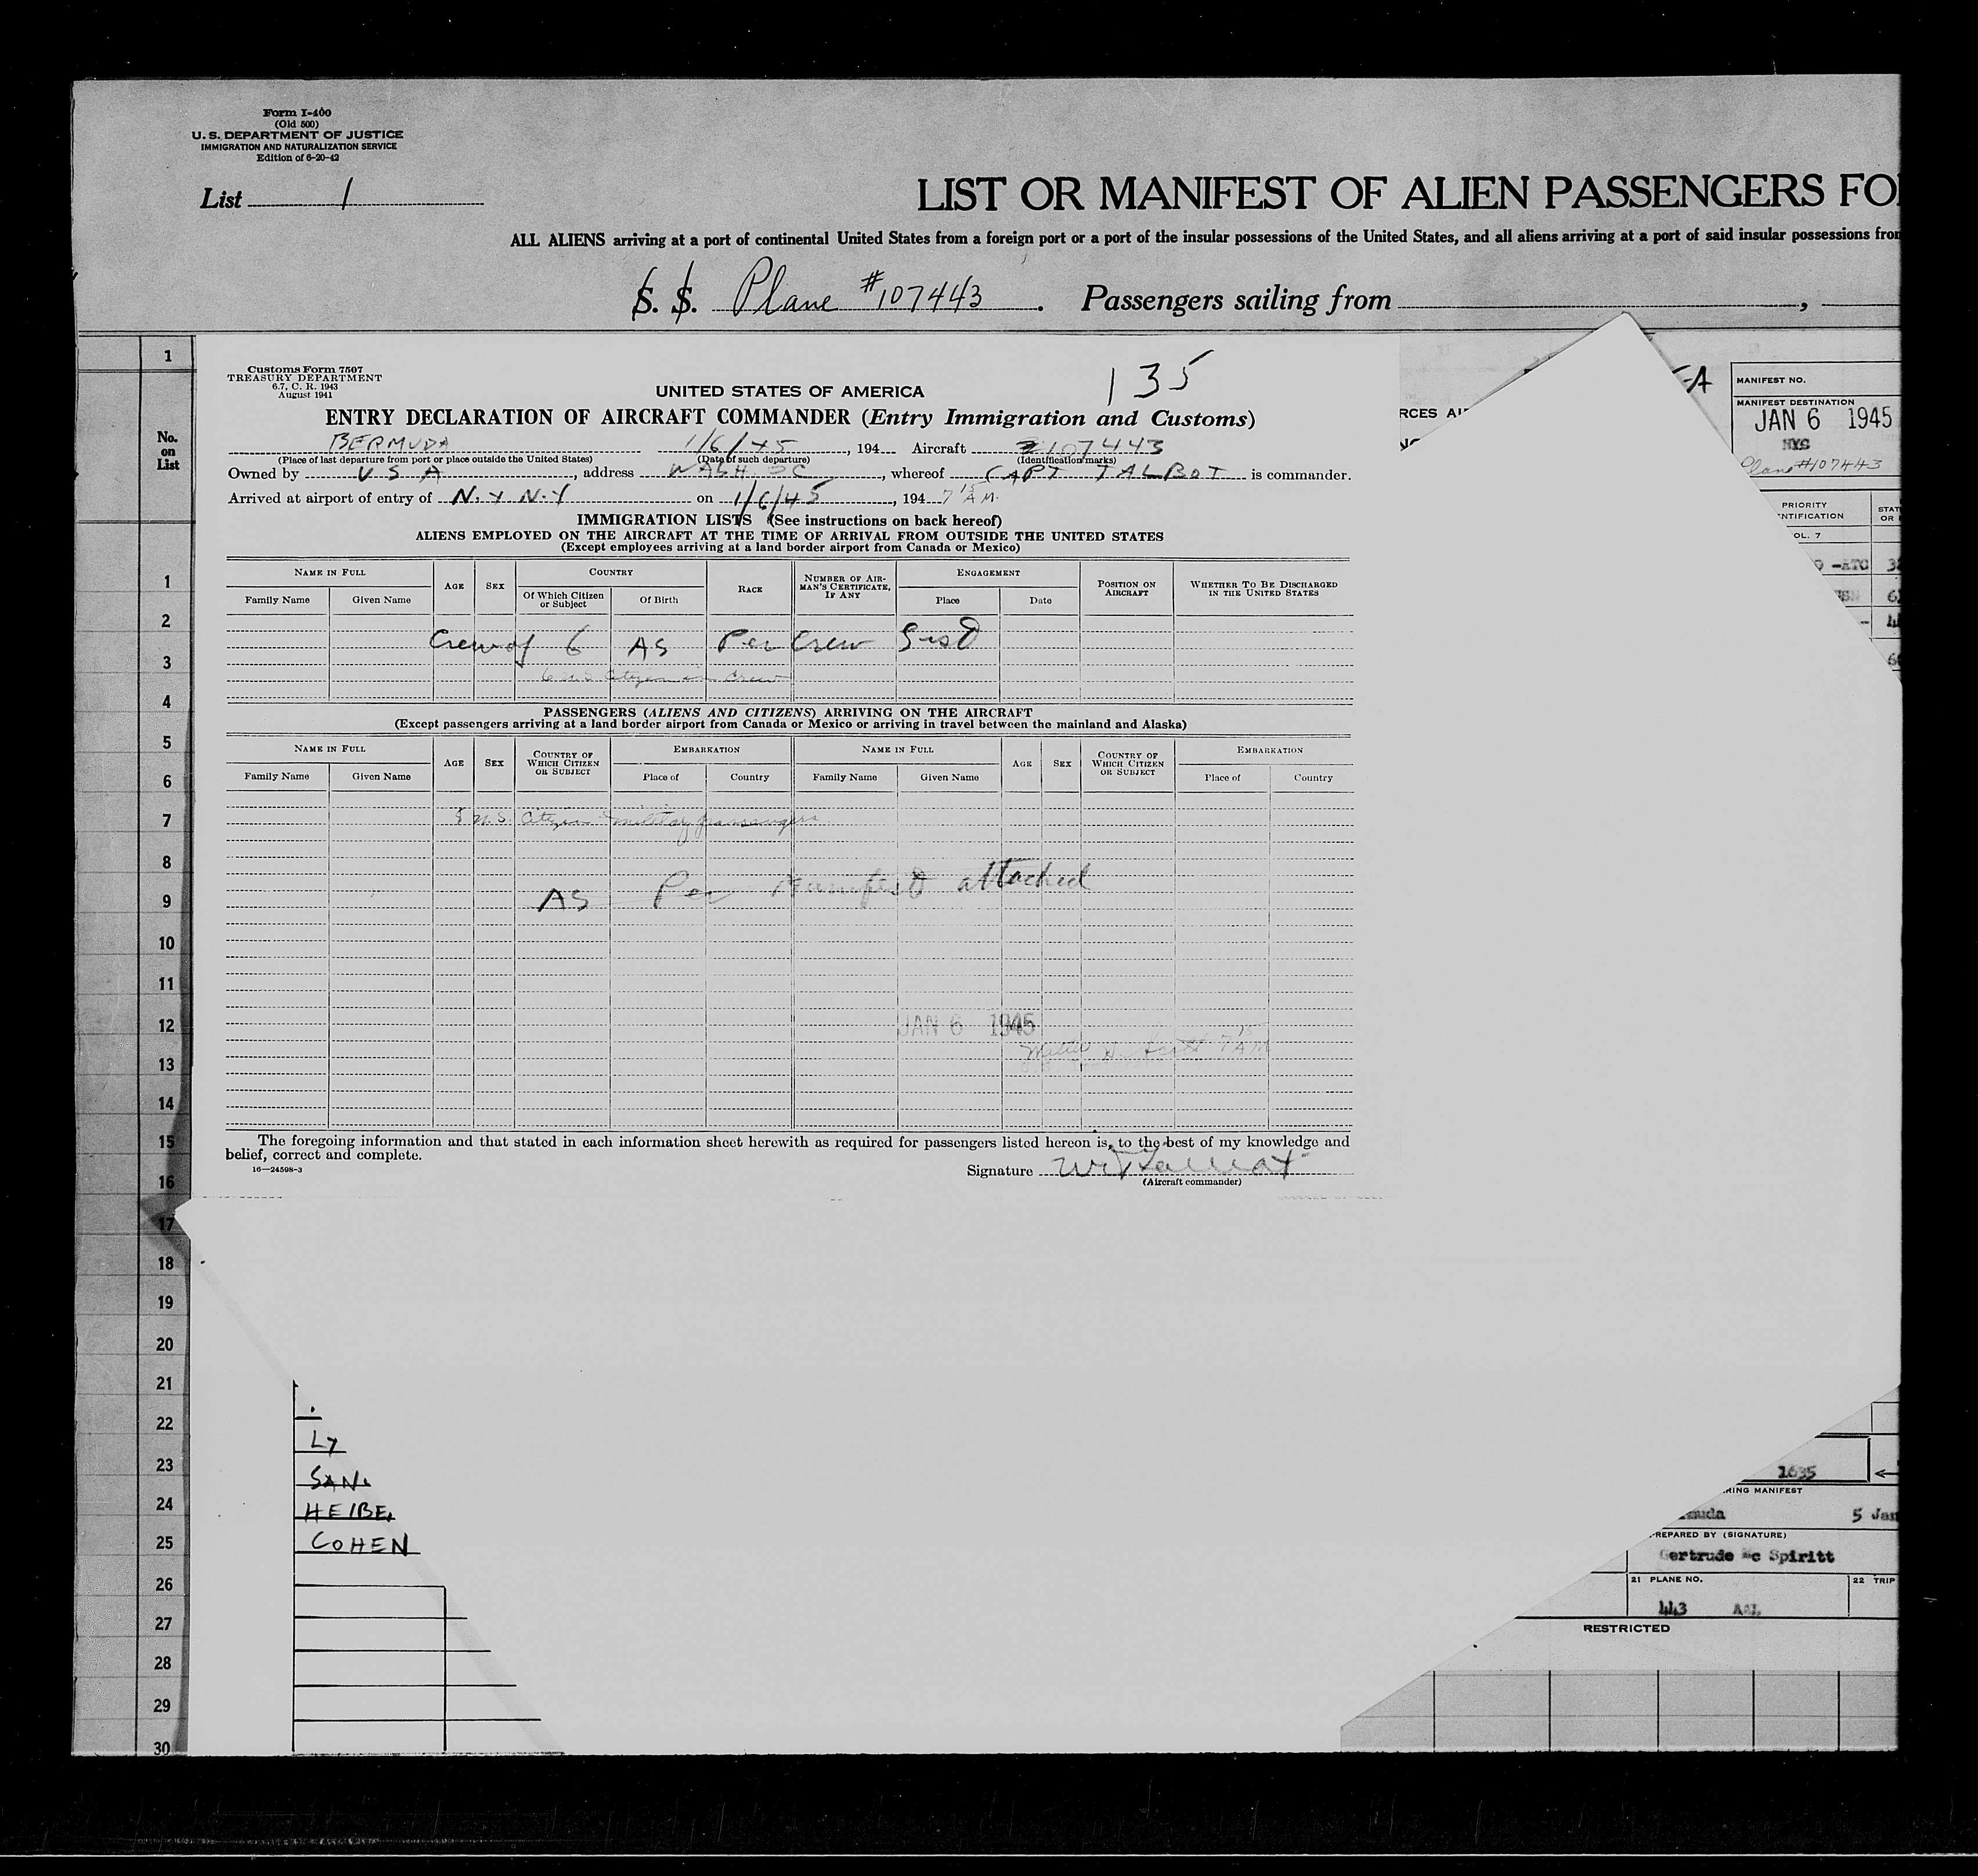 Form I-400
(Old 500)
U. S. DEPARTMENT OF JUSTICE
IMMIGRATION AND NATURALIZATION SERVICE
Edition of 6-20-42
List 1
LIST OR MANIFEST OF ALIEN PASSENGERS FO
ALL ALIENS arriving at a port of continental United States from a foreign port or a port of the insular possessions of the United States, and all aliens arriving at a port of said insular possessions from
S. S. Plane #107443. Passengers sailing from ,
No. on List
1
Customs Form 7507
TREASURY DEPARTMENT
6.7, C. R. 1943
August 1941
135
UNITED STATES OF AMERICA
ENTRY DECLARATION OF AIRCRAFT COMMANDER (Entry Immigration and Customs)
BERMUDA 1/6/45, 194 Aircraft 107443
(Place of last departure from port or place outside the United States) (Date of such departure) (Identification marks)
Owned by U S A, address WASH DC, whereof CAPT TALBOT is commander.
Arrived at airport of entry of N.Y N.Y on 1/6/45, 194 7 15 AM.
IMMIGRATION LISTS (See instructions on back hereof)
ALIENS EMPLOYED ON THE AIRCRAFT AT THE TIME OF ARRIVAL FROM OUTSIDE THE UNITED STATES
(Except employees arriving at a land border airport from Canada or Mexico)
NAME IN FULL AGE SEX COUNTRY RACE NUMBER OF AIRMAN'S CERTIFICATE, IF ANY ENGAGEMENT POSITION ON AIRCRAFT WHETHER TO BE DISCHARGED IN THE UNITED STATES
Family Name Given Name Of Which Citizen or Subject Of Birth Place Date
Crew of 6 AS Per Crew
6 U.S. Citizen in Crew
PASSENGERS (ALIENS AND CITIZENS) ARRIVING ON THE AIRCRAFT
(Except passengers arriving at a land border airport from Canada or Mexico or arriving in travel between the mainland and Alaska)
NAME IN FULL AGE SEX COUNTRY OF WHICH CITIZEN OR SUBJECT EMBARKATION NAME IN FULL AGE SEX COUNTRY OF WHICH CITIZEN OR SUBJECT EMBARKATION
Family Name Given Name Place of Country Family Name Given Name Place of Country
U.S. Citizen military passengers
AS Per Manifest attached
JAN 6 1945
7 15 AM
The foregoing information and that stated in each information sheet herewith as required for passengers listed hereon is, to the best of my knowledge and
belief, correct and complete.
16—24598-3
Signature
(Aircraft commander)
1
2
3
4
5
6
7
8
9
10
11
12
13
14
15
16
17
18
19
20
21
22
23
24
25
26
27
28
29
30
RCES AI
-A
MANIFEST NO.
MANIFEST DESTINATION
JAN 6 1945
NYC
Plane #107443
PRIORITY
NTIFICATION
STAT
OR
OL. 7
-ATC
LY
SAN
HEIBE
COHEN
1635
RING MANIFEST
muda 5 Jan
REPARED BY (SIGNATURE)
Gertrude Mc Spiritt
21 PLANE NO. 22 TRIP
443 AAL
RESTRICTED